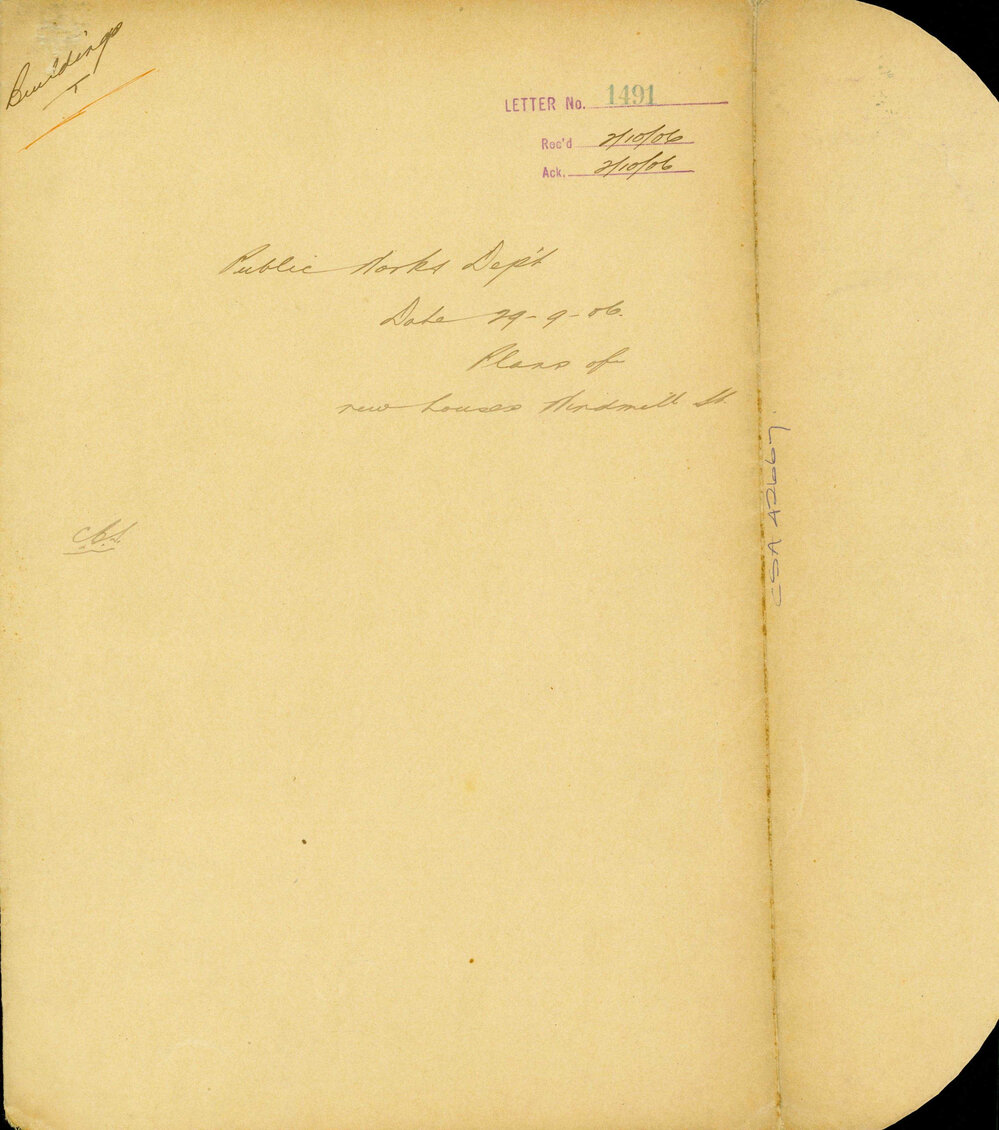 Buildings
LETTER No. 1491
Rec'd 2/10/06
Ack. 2/10/06
Public Works Dep't
Date 29-9-06.
Plans of
new houses Windmill St.
CSA 42667.